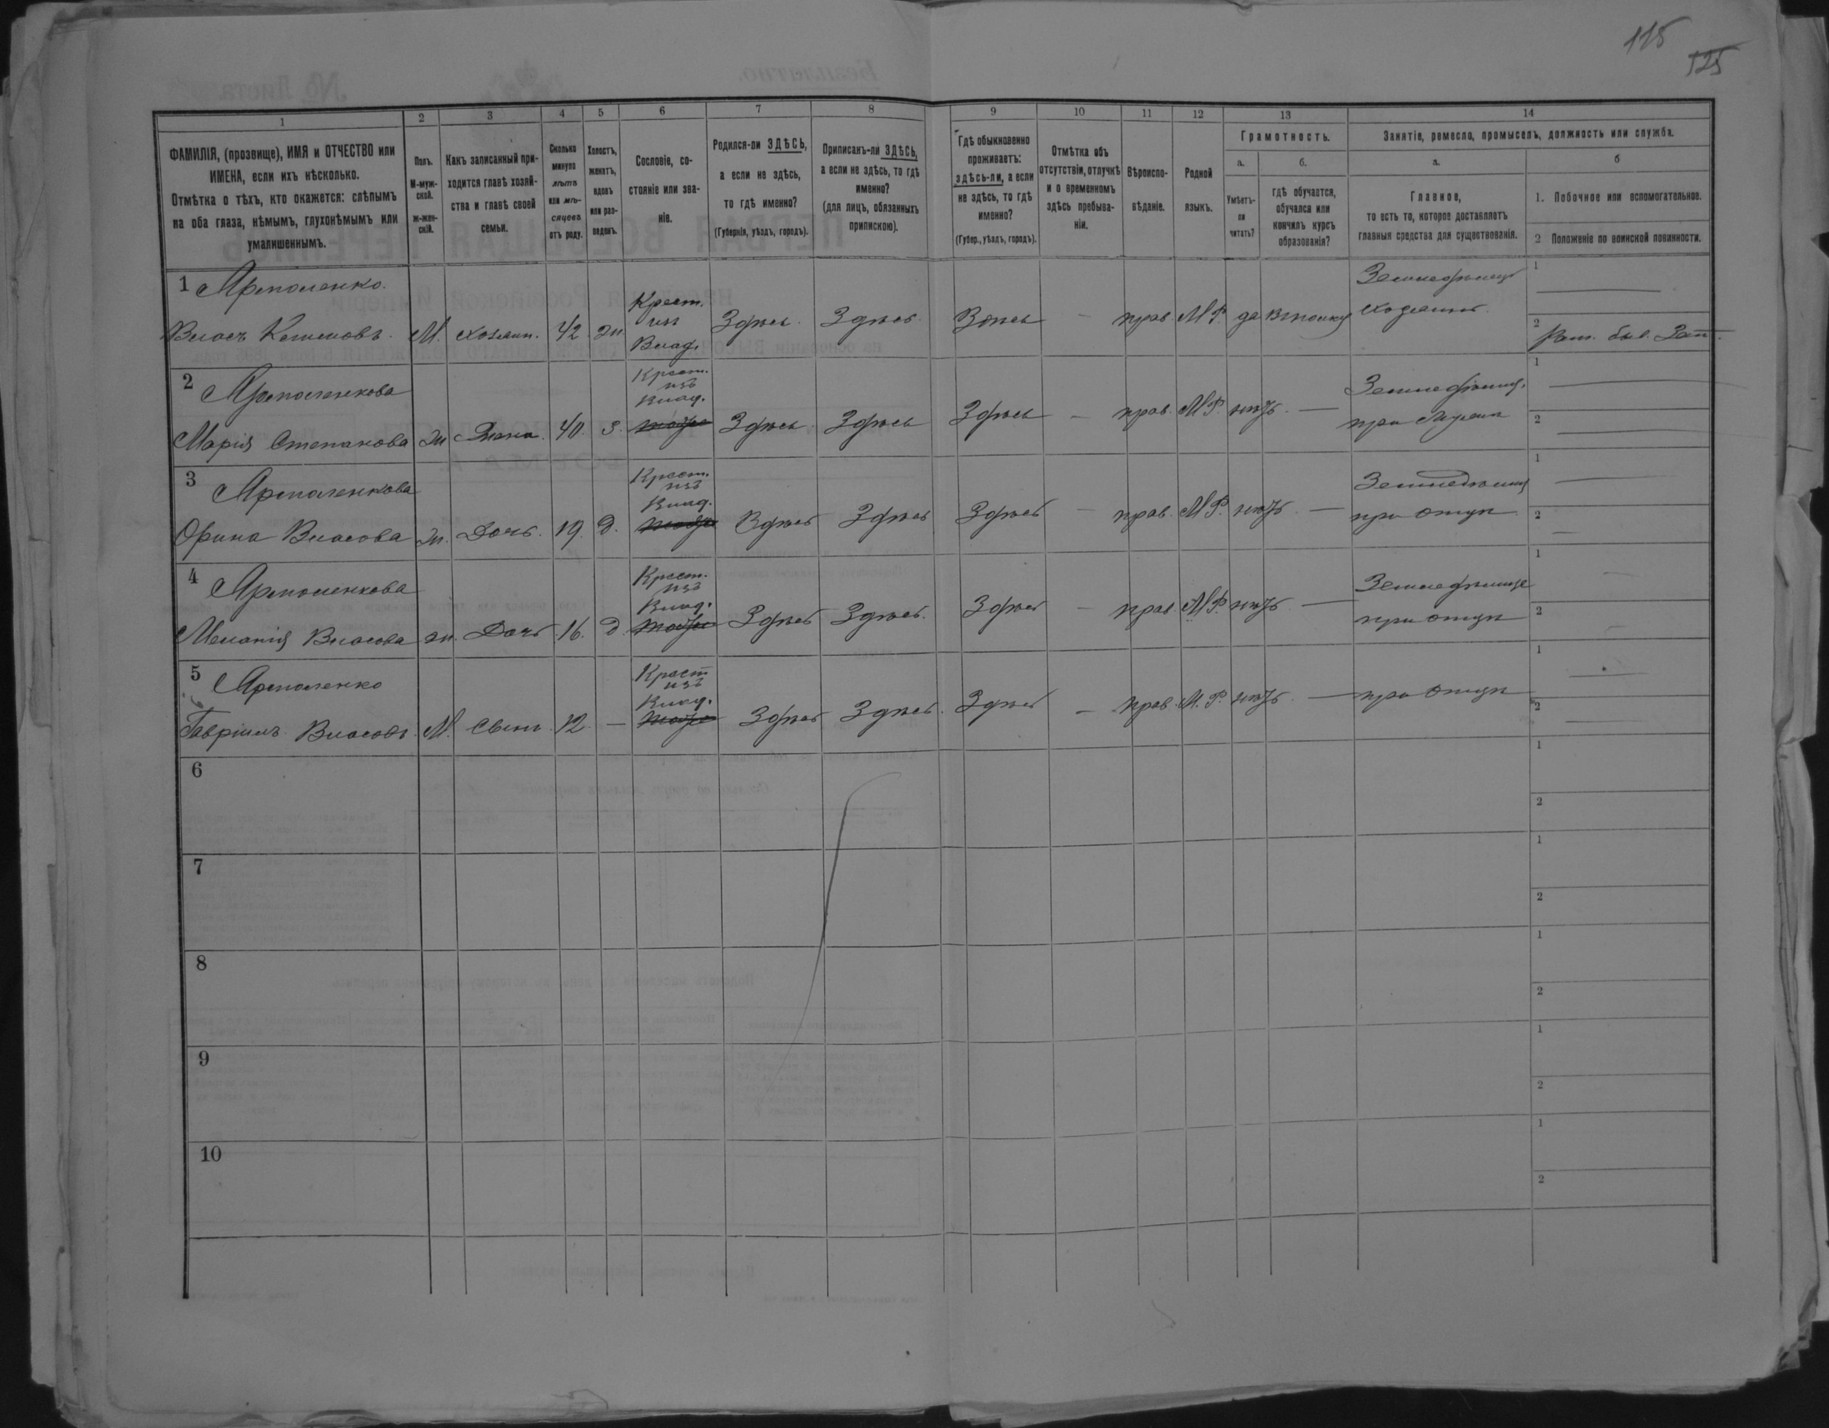 115
125
1 2 3 4 5 6 7 8 9 10 11 12 13 14
ФАМИЛІЯ, (прозвище), ИМЯ и ОТЧЕСТВО или
ИМЕНА, если ихъ нѣсколько.
Отмѣтка о тѣхъ, кто окажется: слѣпымъ
на оба глаза, нѣмымъ, глухонѣмымъ или
умалишеннымъ.
Полъ.
М-муж-
ской.
ж-жен-
скій.
Какъ записанный при-
ходится главѣ хозяй-
ства и главѣ своей
семьи.
Сколько
минуло
лѣтъ
или мѣ-
сяцевъ
отъ роду.
Холостъ,
женатъ,
вдовъ
или раз-
веденъ.
Сословіе, со-
стояніе или зва-
ніе.
Родился-ли ЗДѢСЬ,
а если не здѣсь,
то гдѣ именно?
(Губернія, уѣздъ, городъ).
Приписанъ-ли ЗДѢСЬ,
а если не здѣсь, то гдѣ
именно?
(для лицъ, обязанныхъ
припискою).
Гдѣ обыкновенно
проживаетъ:
здѣсь-ли, а если
не здѣсь, то гдѣ
именно?
(Губер., уѣздъ, городъ).
Отмѣтка объ
отсутствіи, отлучкѣ
и о временномъ
здѣсь пребыва-
ніи.
Вѣроиспо-
вѣданіе.
Родной
языкъ.
Грамотность.
а.
Умѣетъ-
ли
читать?
б.
гдѣ обучается,
обучался или
кончилъ курсъ
образованія?
Занятіе, ремесло, промыселъ, должность или служба.
а.
Главное,
то есть то, которое доставляетъ
главныя средства для существованія.
б
1. Побочное или вспомогательное.
2 Положеніе по воинской повинности.
1 Ярмоленко Земледѣлецъ 1
Власъ М. хозяин. 42 Крест. изъ Влад. Здѣсь Здѣсь Здѣсь — прав. М.Р. да хозяинъ 2
2 Ярмоленкова Земледѣлец. 1
Марія Степанова ж Жена 40 з. Крест. изъ Влад. Здѣсь Здѣсь Здѣсь — прав. М.Р. нѣтъ — при мужѣ 2
3 Ярмоленкова 1
Орина Власова ж. Дочь 19. д. Крест. изъ Влад. Здѣсь Здѣсь Здѣсь — прав. М.Р. нѣтъ — при отцѣ 2
4 Ярмоленкова 1
Меланія Власова ж. Дочь 16. д. Крест. изъ Влад. Здѣсь Здѣсь Здѣсь — прав. М.Р. нѣтъ — при отцѣ 2
5 Ярмоленко 1
Гавріилъ Власовъ М. Сынъ 12 — Крест изъ Влад. Здѣсь Здѣсь Здѣсь — прав. М.Р. нѣтъ — при отцѣ 2
6 1
2
7 1
2
8 1
2
9 1
2
10 1
2